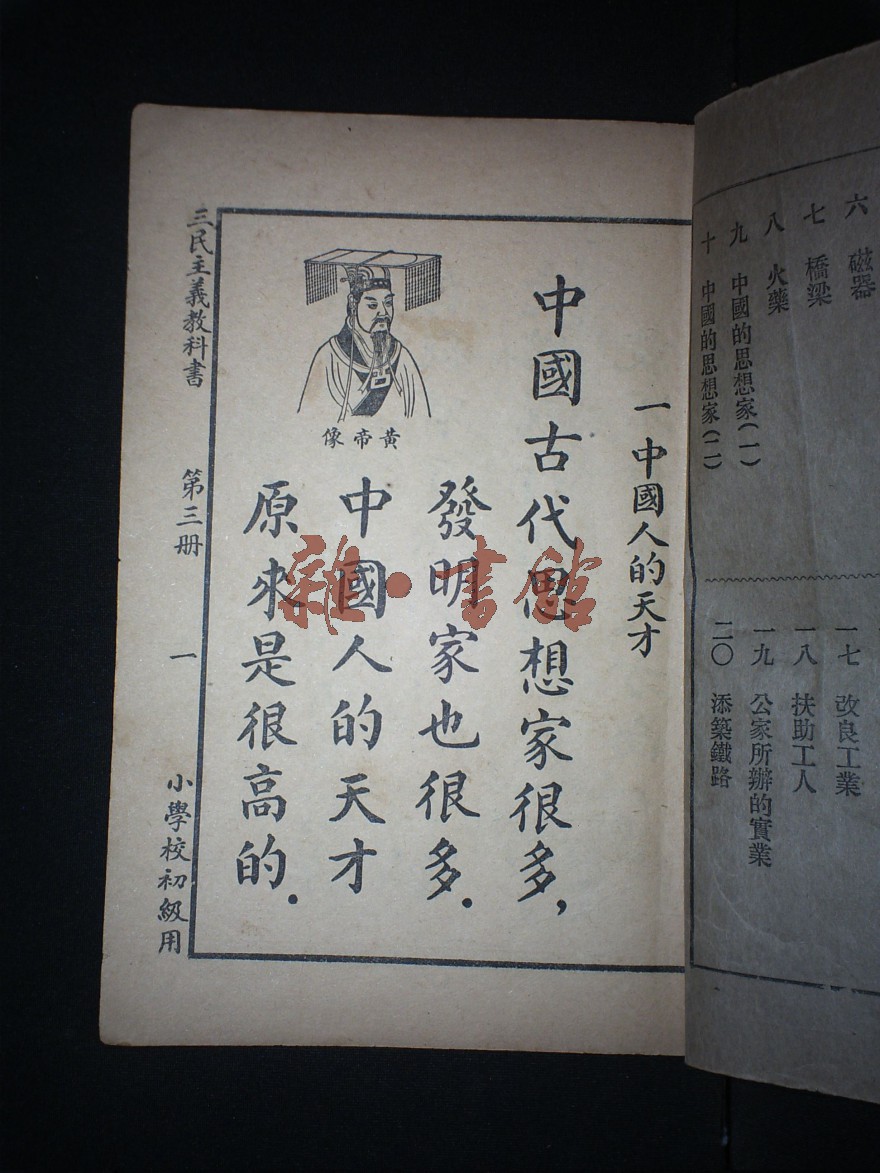 六　磁器
七　橋梁
八　火藥
九　中國的思想家(一)
十　中國的思想家(二)
一七　改良工業
一八　扶助工人
一九　公家所辦的實業
二〇　添築鐵路
一　中國人的天才
中國古代思想家很多,
發明家也很多.
中國人的天才
原來是很高的.
像帝黃
三民主義教科書　第三册　一　小學校初級用
雜·書館